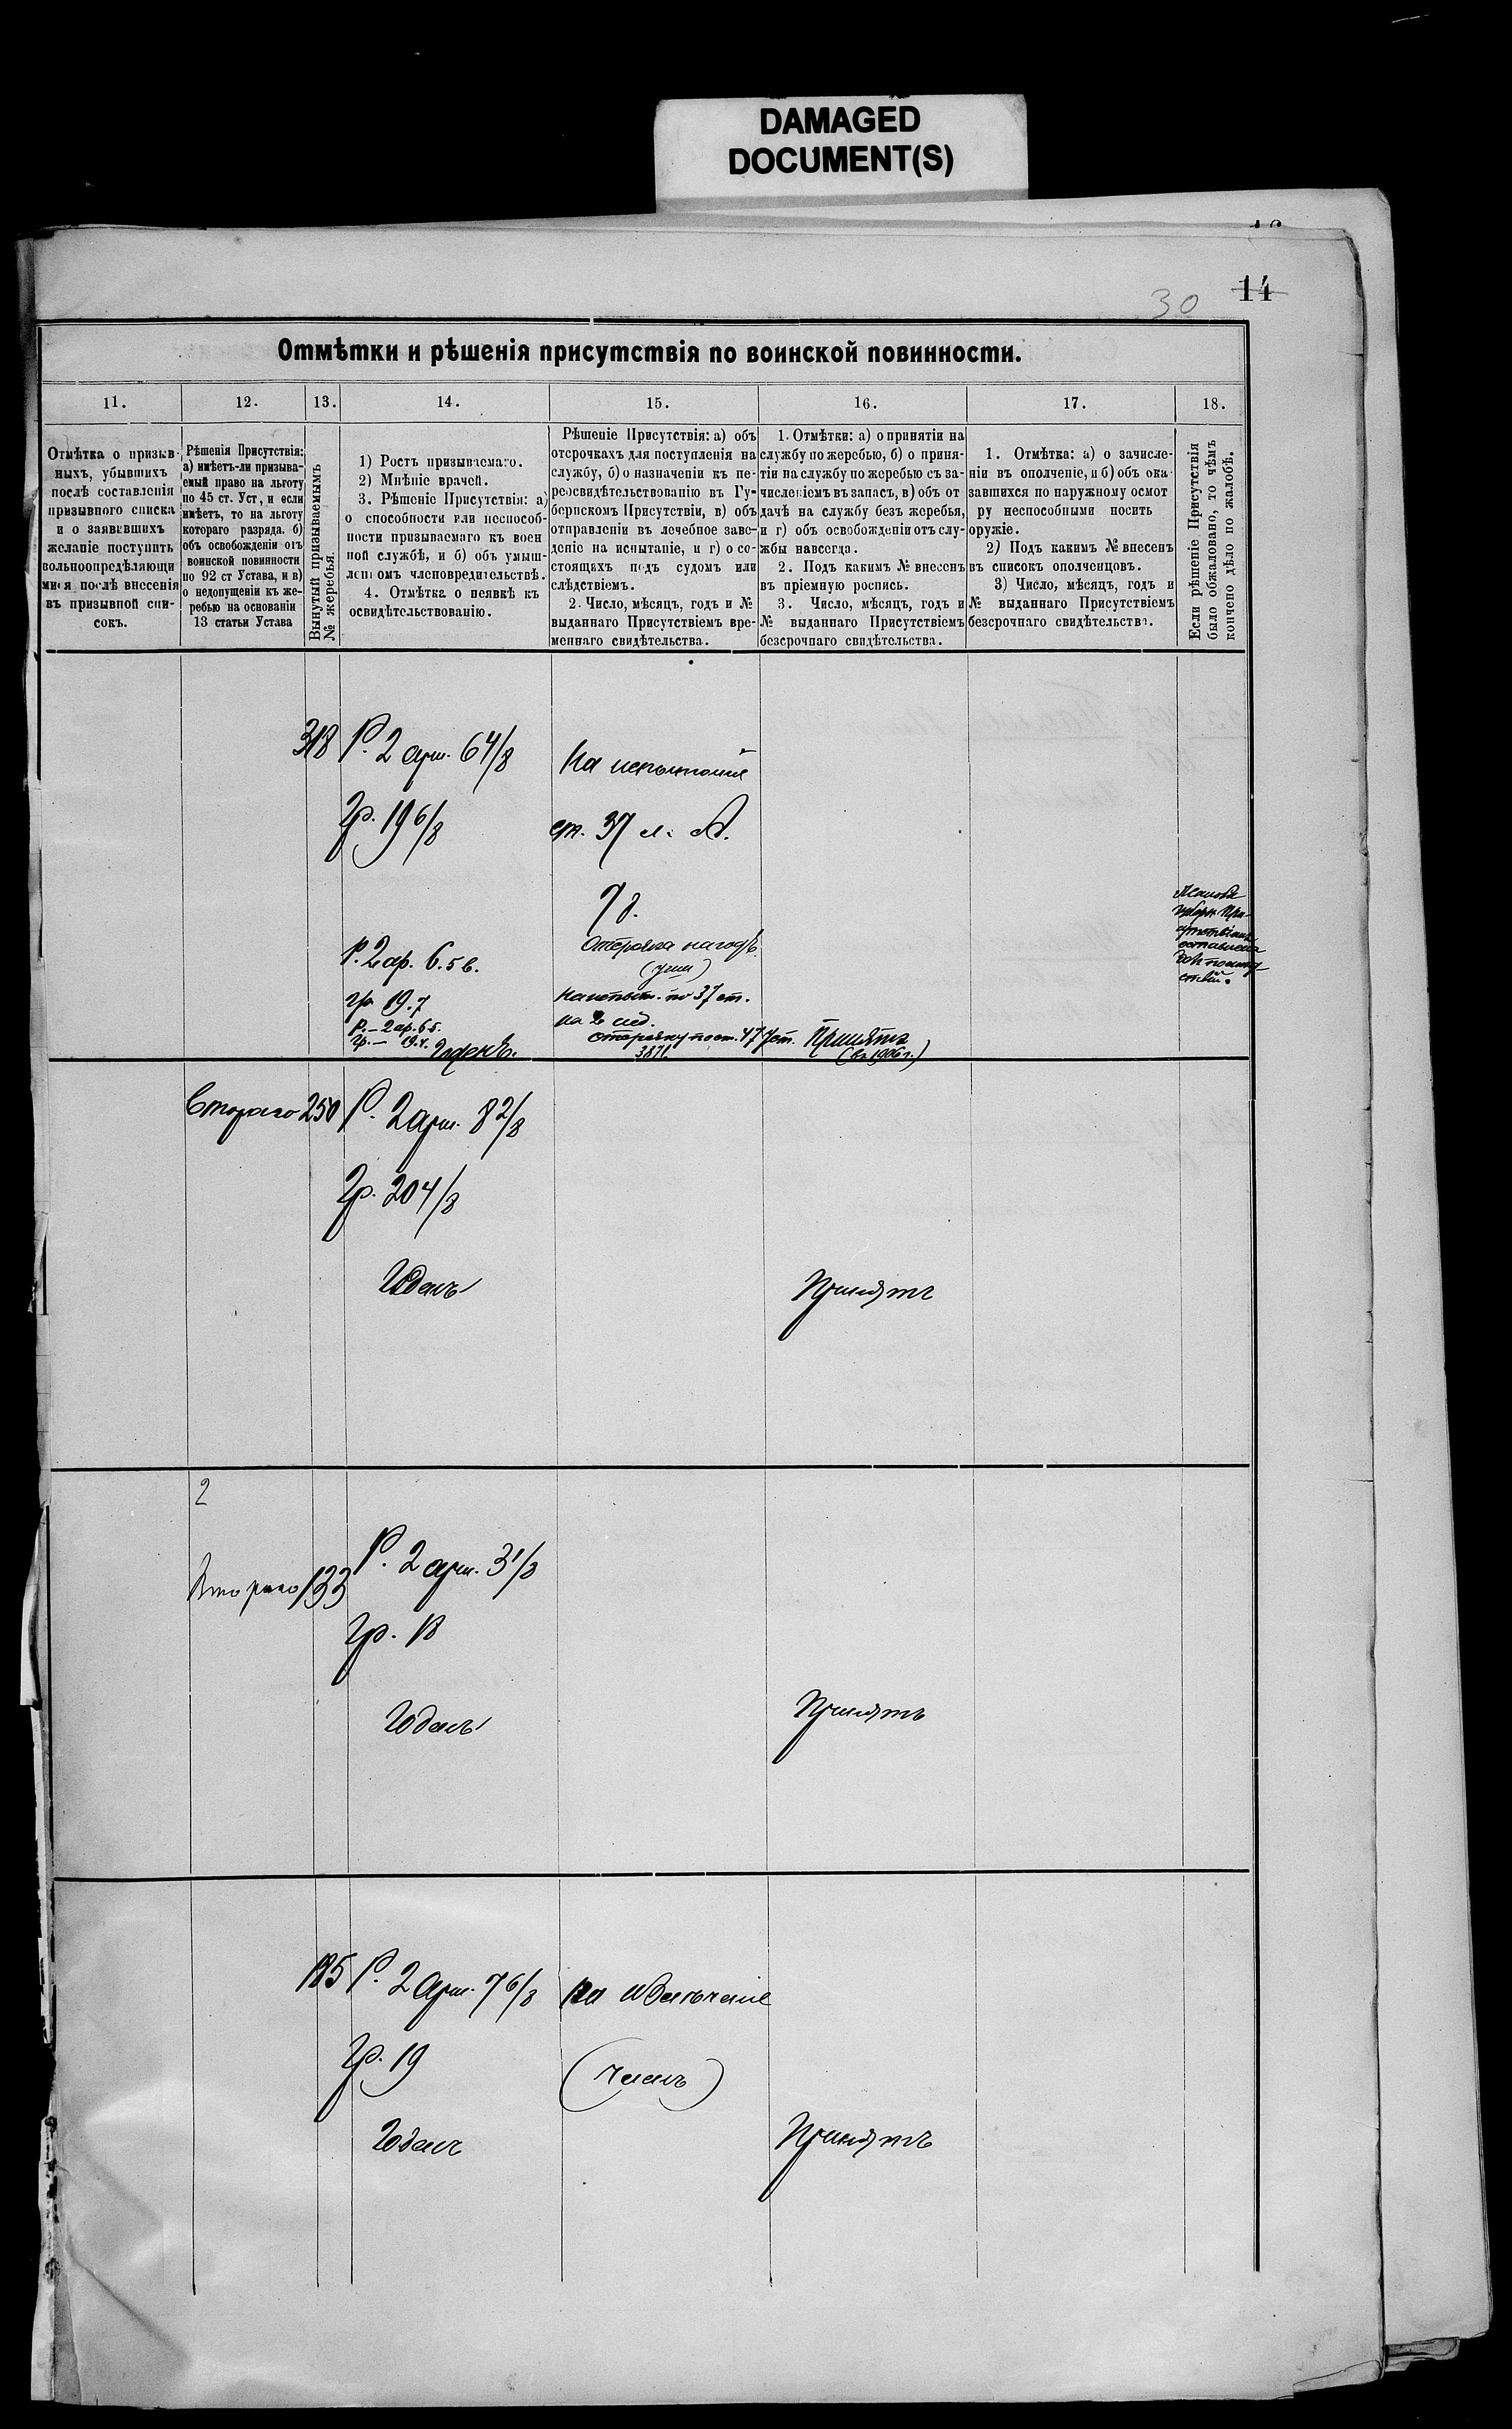 DAMAGED
DOCUMENT(S)
30
14
Отмѣтки и рѣшенія присутствія по воинской повинности.
11.
12.
13.
14.
15.
16.
17.
18.
Отмѣтка о призыв-
ныхъ, убывшихъ
послѣ составленія
призывного списка
и о заявившихъ
желаніе поступить
вольноопредѣляющи
мися послѣ внесенія
въ призывной спи-
сокъ.
Рѣшенія Присутствія:
а) имѣетъ-ли призыва-
емый право на льготу
по 45 ст. Уст, и если
имѣетъ, то на льготу
котораго разряда. б)
объ освобожденіи отъ
воинской повинности
по 92 ст Устава, и в)
о недопущеніи къ же-
ребью на основаніи
13 статьи Устава
Вынутый призываемымъ
№ жеребья.
1) Ростъ призываемаго.
2) Мнѣніе врачей.
3. Рѣшеніе Присутствія: а)
о способности или неспособ-
ности призываемаго къ воен
ной службѣ, и б) объ умыш-
ленномъ членовредительствѣ.
4. Отмѣтка о неявкѣ къ
освидѣтельствованію.
Рѣшеніе Присутствія: а) объ
отсрочкахъ для поступленія на
службу, б) о назначеніи къ пе-
реосвидѣтельствованію въ Гу-
бернскомъ Присутствіи, в) объ
отправленіи въ лечебное заве-
деніе на испытаніе, и г) о со-
стоящихъ подъ судомъ или
слѣдствіемъ.
2. Число, мѣсяцъ, годъ и №
выданнаго Присутствіемъ вре-
меннаго свидѣтельства.
1. Отмѣтки: а) о принятіи на
службу по жеребью, б) о приня-
тіи на службу по жеребью съ за-
численіемъ въ запасъ, в) объ от
дачѣ на службу безъ жеребья,
и г) объ освобожденіи отъ слу-
жбы навсегда.
2. Подъ какимъ № внесенъ
въ пріемную роспись.
3. Число, мѣсяцъ, годъ и
№ выданнаго Присутствіемъ
безсрочнаго свидѣтельства.
1. Отмѣтка: а) о зачисле-
ніи въ ополченіе, и б) объ ока
завшихся по наружному осмот
ру неспособными носить
оружіе.
2) Подъ какимъ № внесенъ
въ списокъ ополченцовъ.
3) Число, мѣсяцъ, годъ и
№ выданнаго Присутствіемъ
безсрочнаго свидѣтельства.
Если рѣшеніе Присутствія
было обжаловано, то чѣмъ
кончено дѣло по жалобѣ.
318
Р. 2 арш. 6 4/8
Гр. 19 6/8
На испытаніе
ст. 37 л. А.
Р. 2 ар. 6.5 в.
гр 19.7
Р. – 2 ар. 6 5.
Гр. – 19.4.
Годенъ.
Отсрочка на годъ
на испыт. по 37 ст.
на 2 нед.
отсрочку по ст. 47 уст.
3871.
Принятъ
(въ 1906 г.)
Жалоба
губерн. При-
сутствіемъ
оставлена
безъ послѣд-
ствій.
Второго
250
Р. 2 арш. 8 2/8
Гр. 20 4/8
Годенъ
Принятъ
2
Второго
133
Р. 2 арш. 3 1/8
Гр. 18
Годенъ
Принятъ
185
Р. 2 арш. 7 6/8
Гр. 19
Годенъ
на
Принятъ